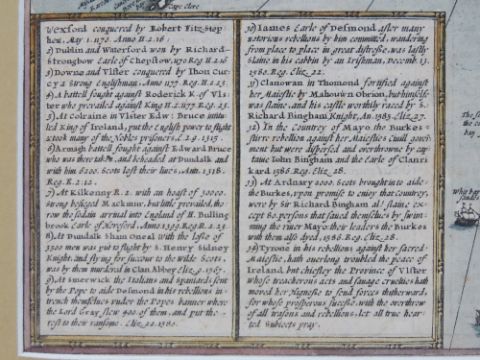 Cape Clere
Wexford conquered by Robert Fitz-Step
hen, May 1. 1170. Anno H.2.16.
2) Dublin and Waterford won by Richard
Strongbow Earle of Chepstow, 1170 Reg H.2.16
3) Downe and Vlster conquered by Thon Cur
cy a strong Englishman, Anno 1177. Reg H.2.23.
4) A battell fought against Roderick K. of Vls
ter who prevailed against King H.2. 1177. Reg. 23.
5) At Colraine in Vlster Edw: Bruce intitu
led King of Ireland, put the english power to flight
& took many of the Nobles prisoners E.2.9. 1315.
6) Armagh battell fought against Edward Bruce
who was there taken, and beheaded at Dundalk and
with him 6200. Scots lost their lives, Ann. 1318.
Reg. E.2.12.
7) At Kilkenny R.2. with an hoast of 30000.
strong besieged Mackmur, but little prevailed, tho-
row the sodain arrival into England of H. Bulling
brook Earle of Hereford. Anno 1399. Reg. R.2.23.
8) At Dundalk Sham Oneal with the losse of
3500 men was put to flight by S. Henry Sidney
Knight. and flying for succour to the wilde Scots,
was by them murdered in Clan Abboy Eliz 9. 1567.
9) At Smerwick the Italians and Spaniards sent
by the Pope to aide Desmond in his rebellions in
trench themselues vnder the Popes banner where
the Lord Gray slew 900. of them, and put the
rest to their ransome. Eliz 22. 1580.
10) Iames Earle of Desmond after many
notorious rebellions by him committed, wandering
from place to place in great distresse, was lastly
slaine in his cabbin by an Irishman, Decemb. 13.
1580. Reg. Eliz. 22.
11) Clanowan in Thomond fortified against
her Maiestie by Mahouwn Obrion, but himselfe
was slaine, and his castle worthily raced by S.
Richard Bingham Knight, An. 1585. Eliz. 27.
12) In the Country of Mayo the Burkes
stirre rebellion against her Maiesties Ciuill gouern
ment but were dispersed and overthrowne by cap
taine Iohn Bingham and the Earle of Clanri
kard. 1586. Reg. Eliz. 28.
13) At Ardnary 2000. Scots brought in to aide
the Burkes, vpon promise to enioy that countrey,
were by Sir Richard Bingham al' slaine except
80. persons that saued themselues by swim
ming the river Mayo their leaders the Burkes
with them also dyed, 1586. Reg. Eliz. 28.
14) Tyrone in his rebellions against her sacred
Maiestie, hath overlong troubled the peace of
Ireland, but chiefley the Province of Vlster
whose treacherous acts and sauage cruelties hath
moved her, Highnesse to send forces thitherward,
for whose prosperous successe, with the overthrow
of all traytors and rebellions, let all true hear
ted Subiects pray.